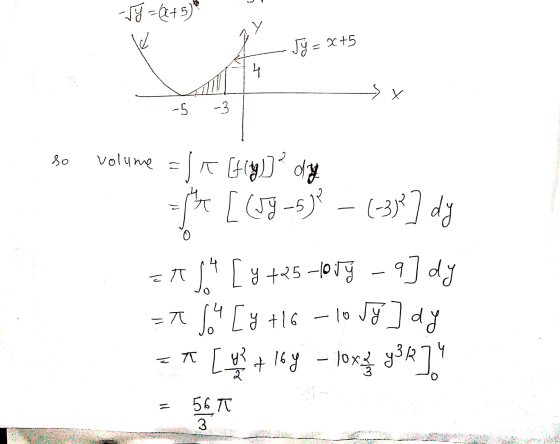 -√y = (x+5)
Y
√y = x+5
4
X
-5 -3
so volume = ∫ π [f(y)]² dy
= ∫₀⁴ π [(√y -5)² - (-3)²] dy
= π ∫₀⁴ [y +25 -10√y - 9] dy
= π ∫₀⁴ [y +16 - 10 √y] dy
= π [y²/2 + 16y - 10×2/3 y^3/2]₀⁴
= 56/3 π